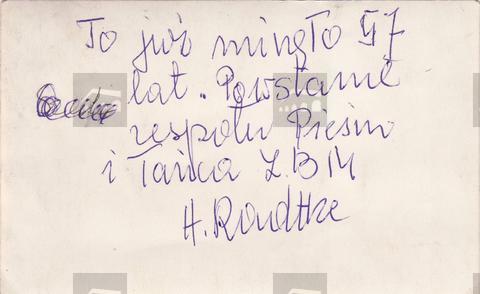 To już minęło 57
lat. Powstanie
zespołu Pieśni
i Tańca Z.B.M
H. Radtke